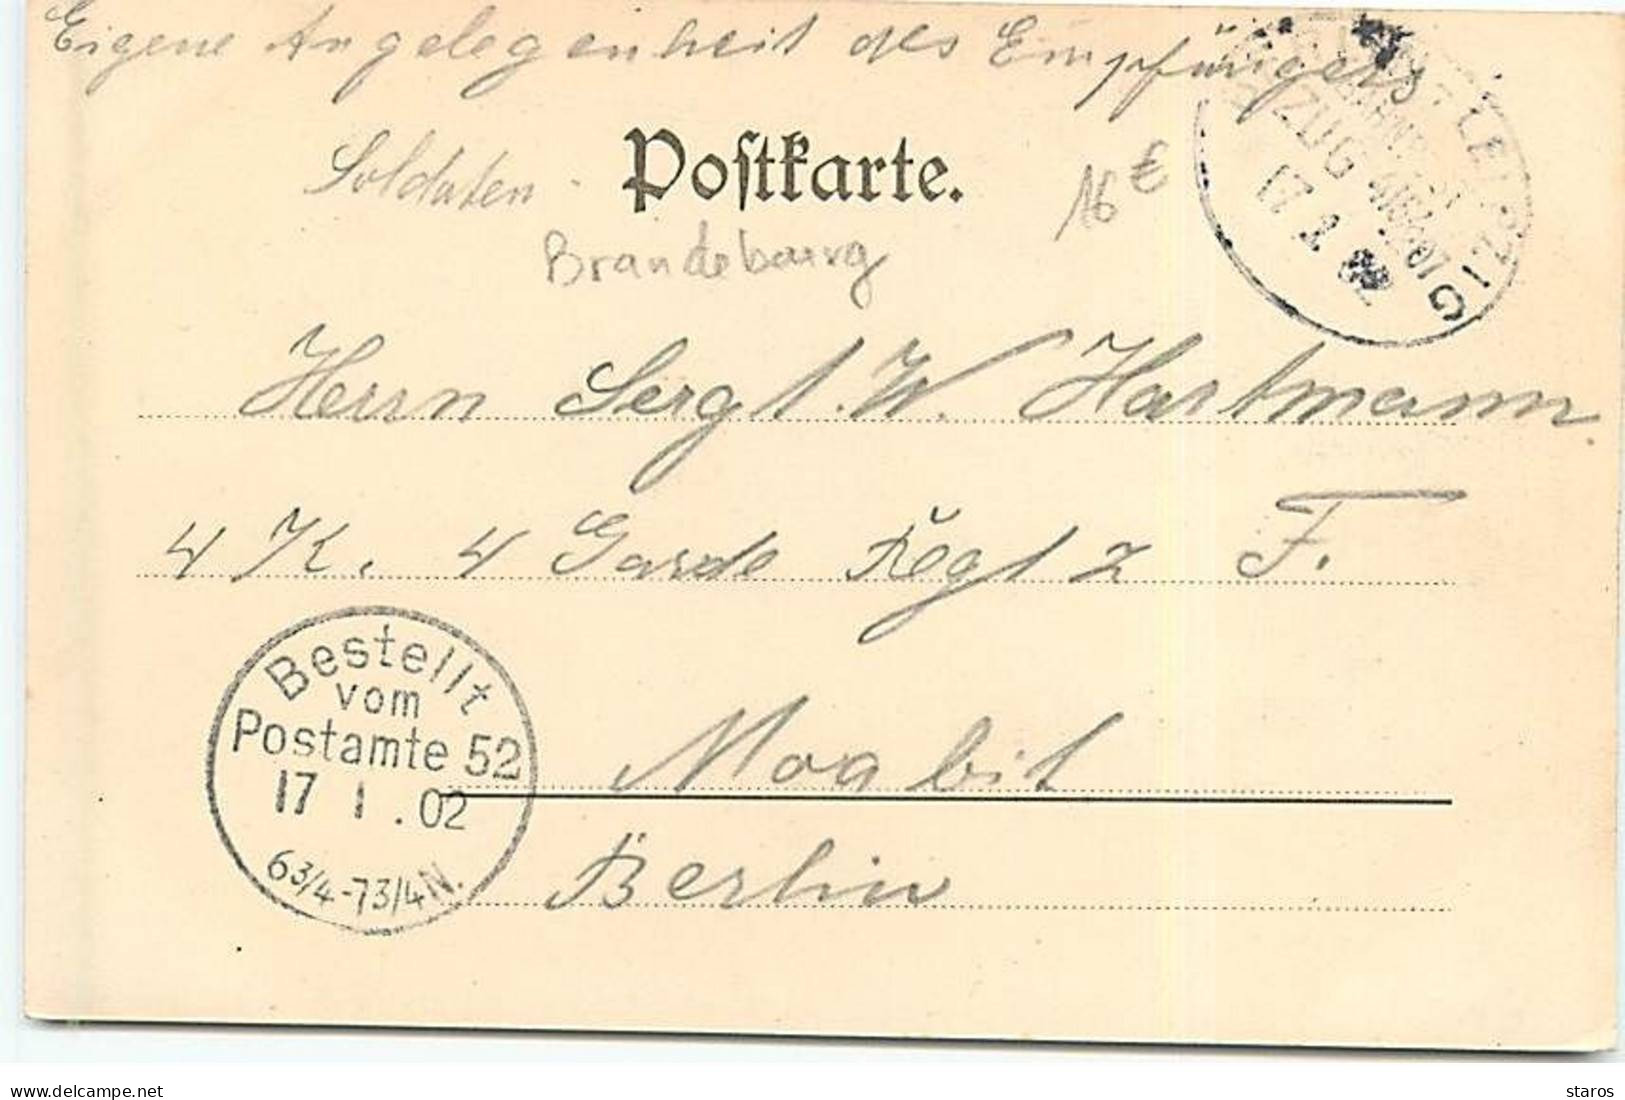 Eigene Angelegenheit des Empfängers
Soldaten. Postkarte.
16 €
Brandebourg
LEIPZIG
BAHNPOST
ZUG
17 1 02
Herrn Sergt. W. Hartmann.
4 K. 4 Garde Regt z F.
Bestellt
vom
Postamte 52
17 1.02
6 3/4-7 3/4 N.
Moabit
Berlin
delcampe.net
staros